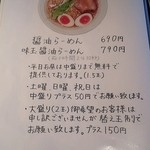 醤油らーめん 690円
味玉醤油らーめん 790円
・平日お昼は中盛りまで無料で
提供しております。(1.5玉)
・土曜、日曜、祝日は
中盛りプラス50円でお願い致します。
・大盛り(2玉)御希望のお客様は
申し訳ございませんが替え玉にて
お願い致します。プラス150円